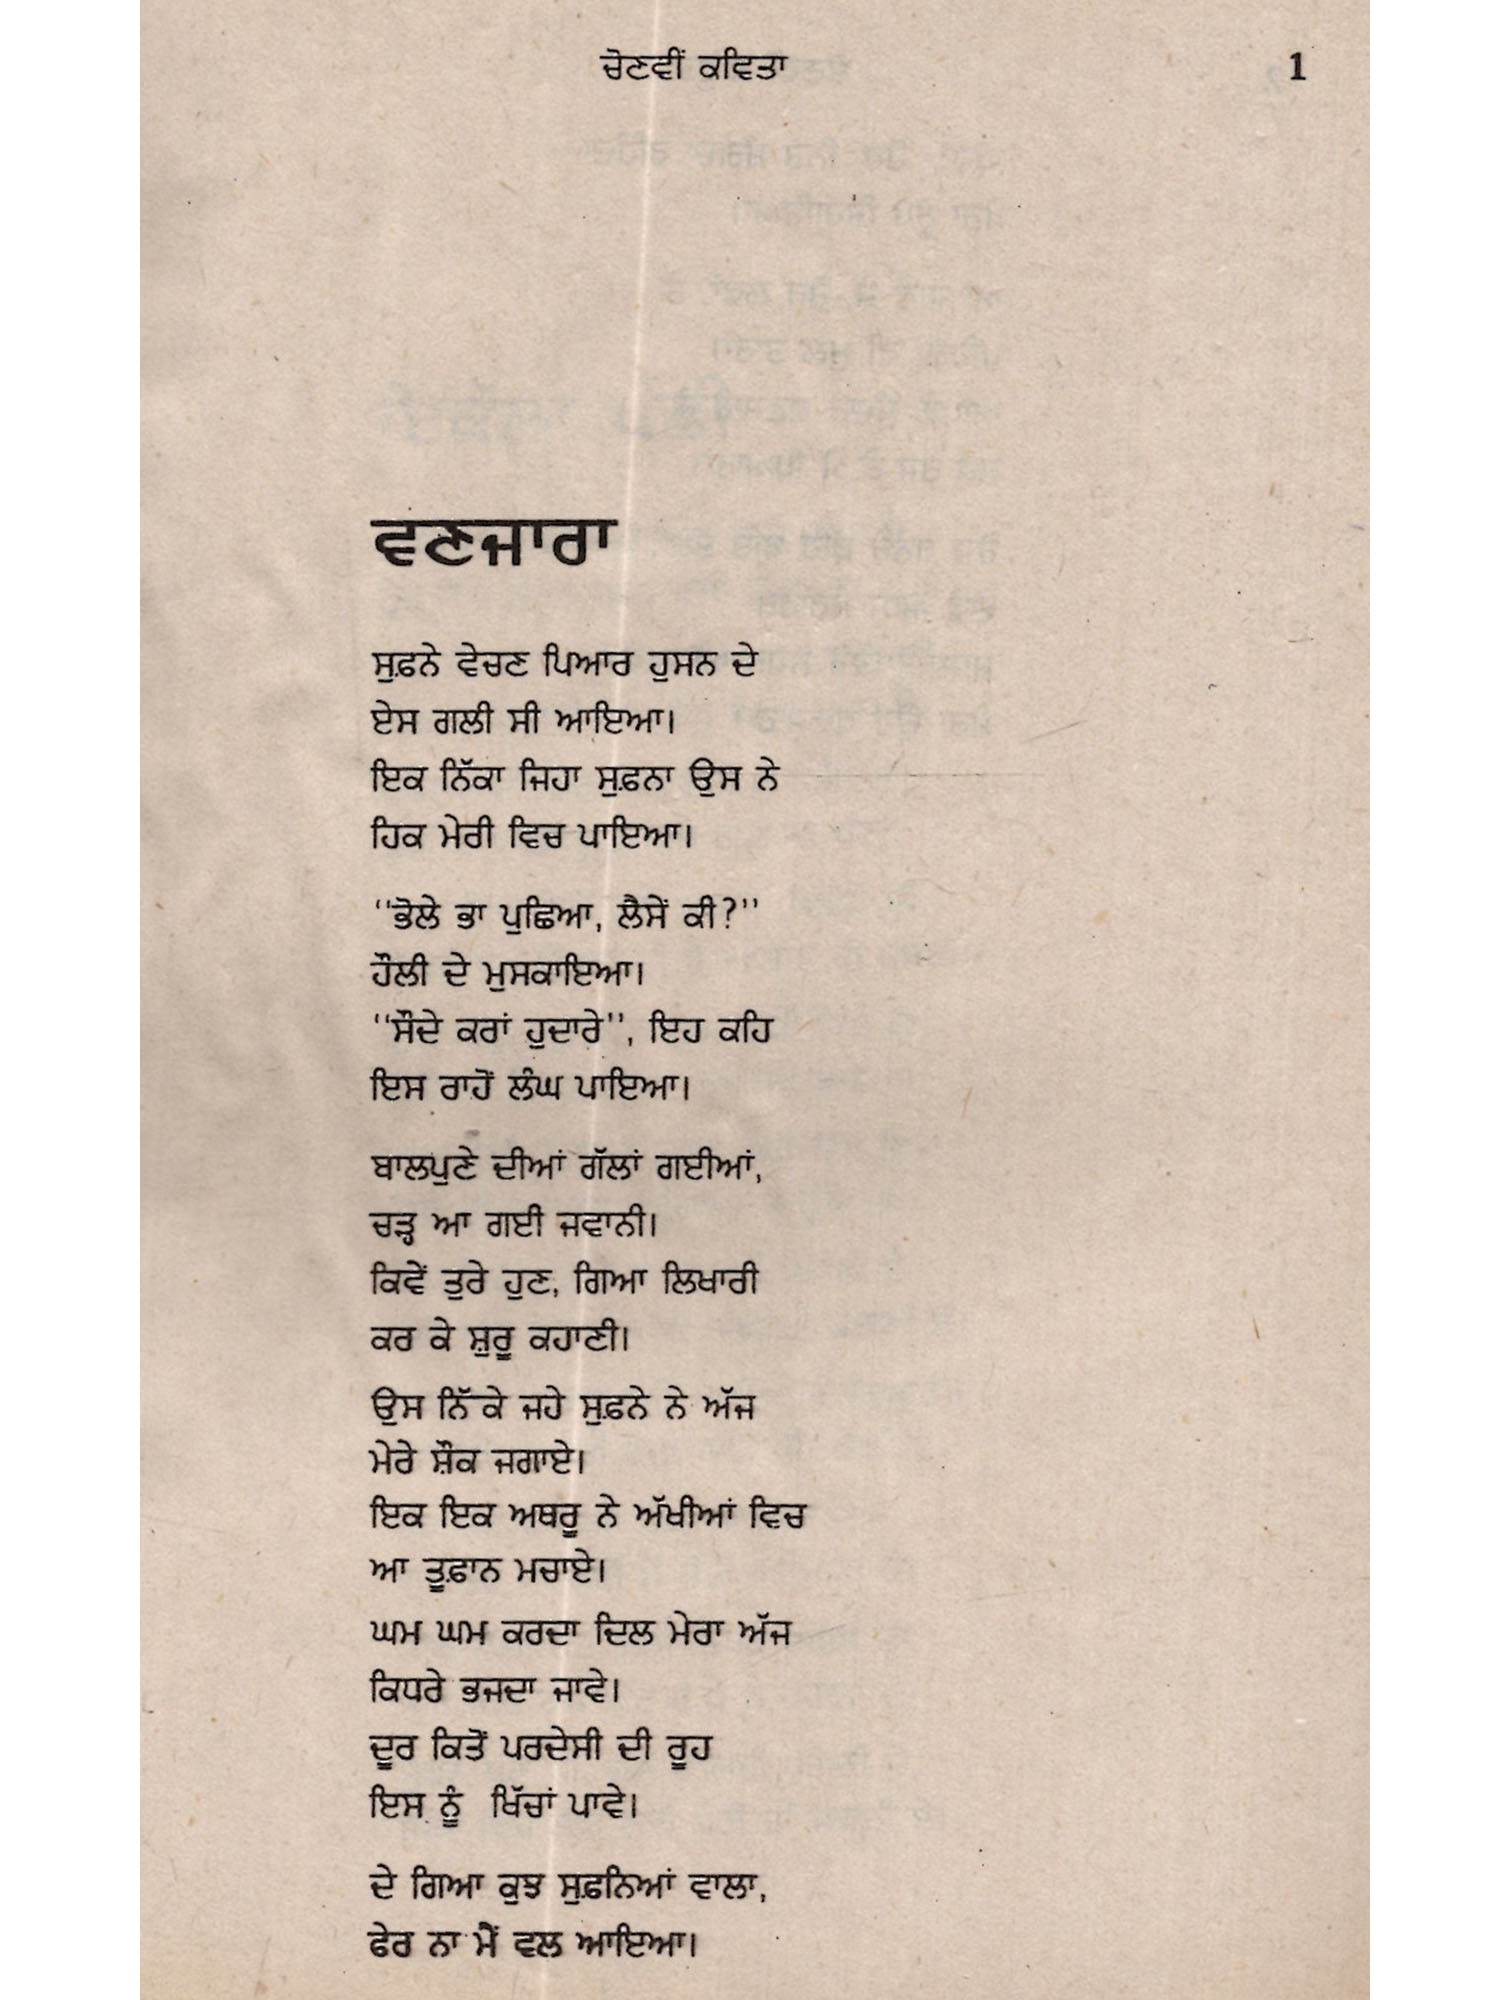 ਚੋਣਵੀਂ ਕਵਿਤਾ 1
ਵਣਜਾਰਾ
ਸੁਫ਼ਨੇ ਵੇਚਣ ਪਿਆਰ ਹੁਸਨ ਦੇ
ਏਸ ਗਲੀ ਸੀ ਆਇਆ।
ਇਕ ਨਿੱਕਾ ਜਿਹਾ ਸੁਫ਼ਨਾ ਉਸ ਨੇ
ਹਿਕ ਮੇਰੀ ਵਿਚ ਪਾਇਆ।
"ਭੋਲੇ ਭਾ ਪੁਛਿਆ, ਲੈਸੇਂ ਕੀ?"
ਹੌਲੀ ਦੇ ਮੁਸਕਾਇਆ।
"ਸੌਦੇ ਕਰਾਂ ਹੁਦਾਰੇ", ਇਹ ਕਹਿ
ਇਸ ਰਾਹੋਂ ਲੰਘ ਪਾਇਆ।
ਬਾਲਪੁਣੇ ਦੀਆਂ ਗੱਲਾਂ ਗਈਆਂ,
ਚੜ੍ਹ ਆ ਗਈ ਜਵਾਨੀ।
ਕਿਵੇਂ ਤੁਰੇ ਹੁਣ, ਗਿਆ ਲਿਖਾਰੀ
ਕਰ ਕੇ ਸ਼ੁਰੂ ਕਹਾਣੀ।
ਉਸ ਨਿੱਕੇ ਜਹੇ ਸੁਫ਼ਨੇ ਨੇ ਅੱਜ
ਮੇਰੇ ਸ਼ੌਕ ਜਗਾਏ।
ਇਕ ਇਕ ਅਥਰੂ ਨੇ ਅੱਖੀਆਂ ਵਿਚ
ਆ ਤੂਫ਼ਾਨ ਮਚਾਏ।
ਘਮ ਘਮ ਕਰਦਾ ਦਿਲ ਮੇਰਾ ਅੱਜ
ਕਿਧਰੇ ਭਜਦਾ ਜਾਵੇ।
ਦੂਰ ਕਿਤੋਂ ਪਰਦੇਸੀ ਦੀ ਰੂਹ
ਇਸ ਨੂੰ ਖਿੱਚਾਂ ਪਾਵੇ।
ਦੇ ਗਿਆ ਕੁਝ ਸੁਫ਼ਨਿਆਂ ਵਾਲਾ,
ਫੇਰ ਨਾ ਮੈਂ ਵਲ ਆਇਆ।